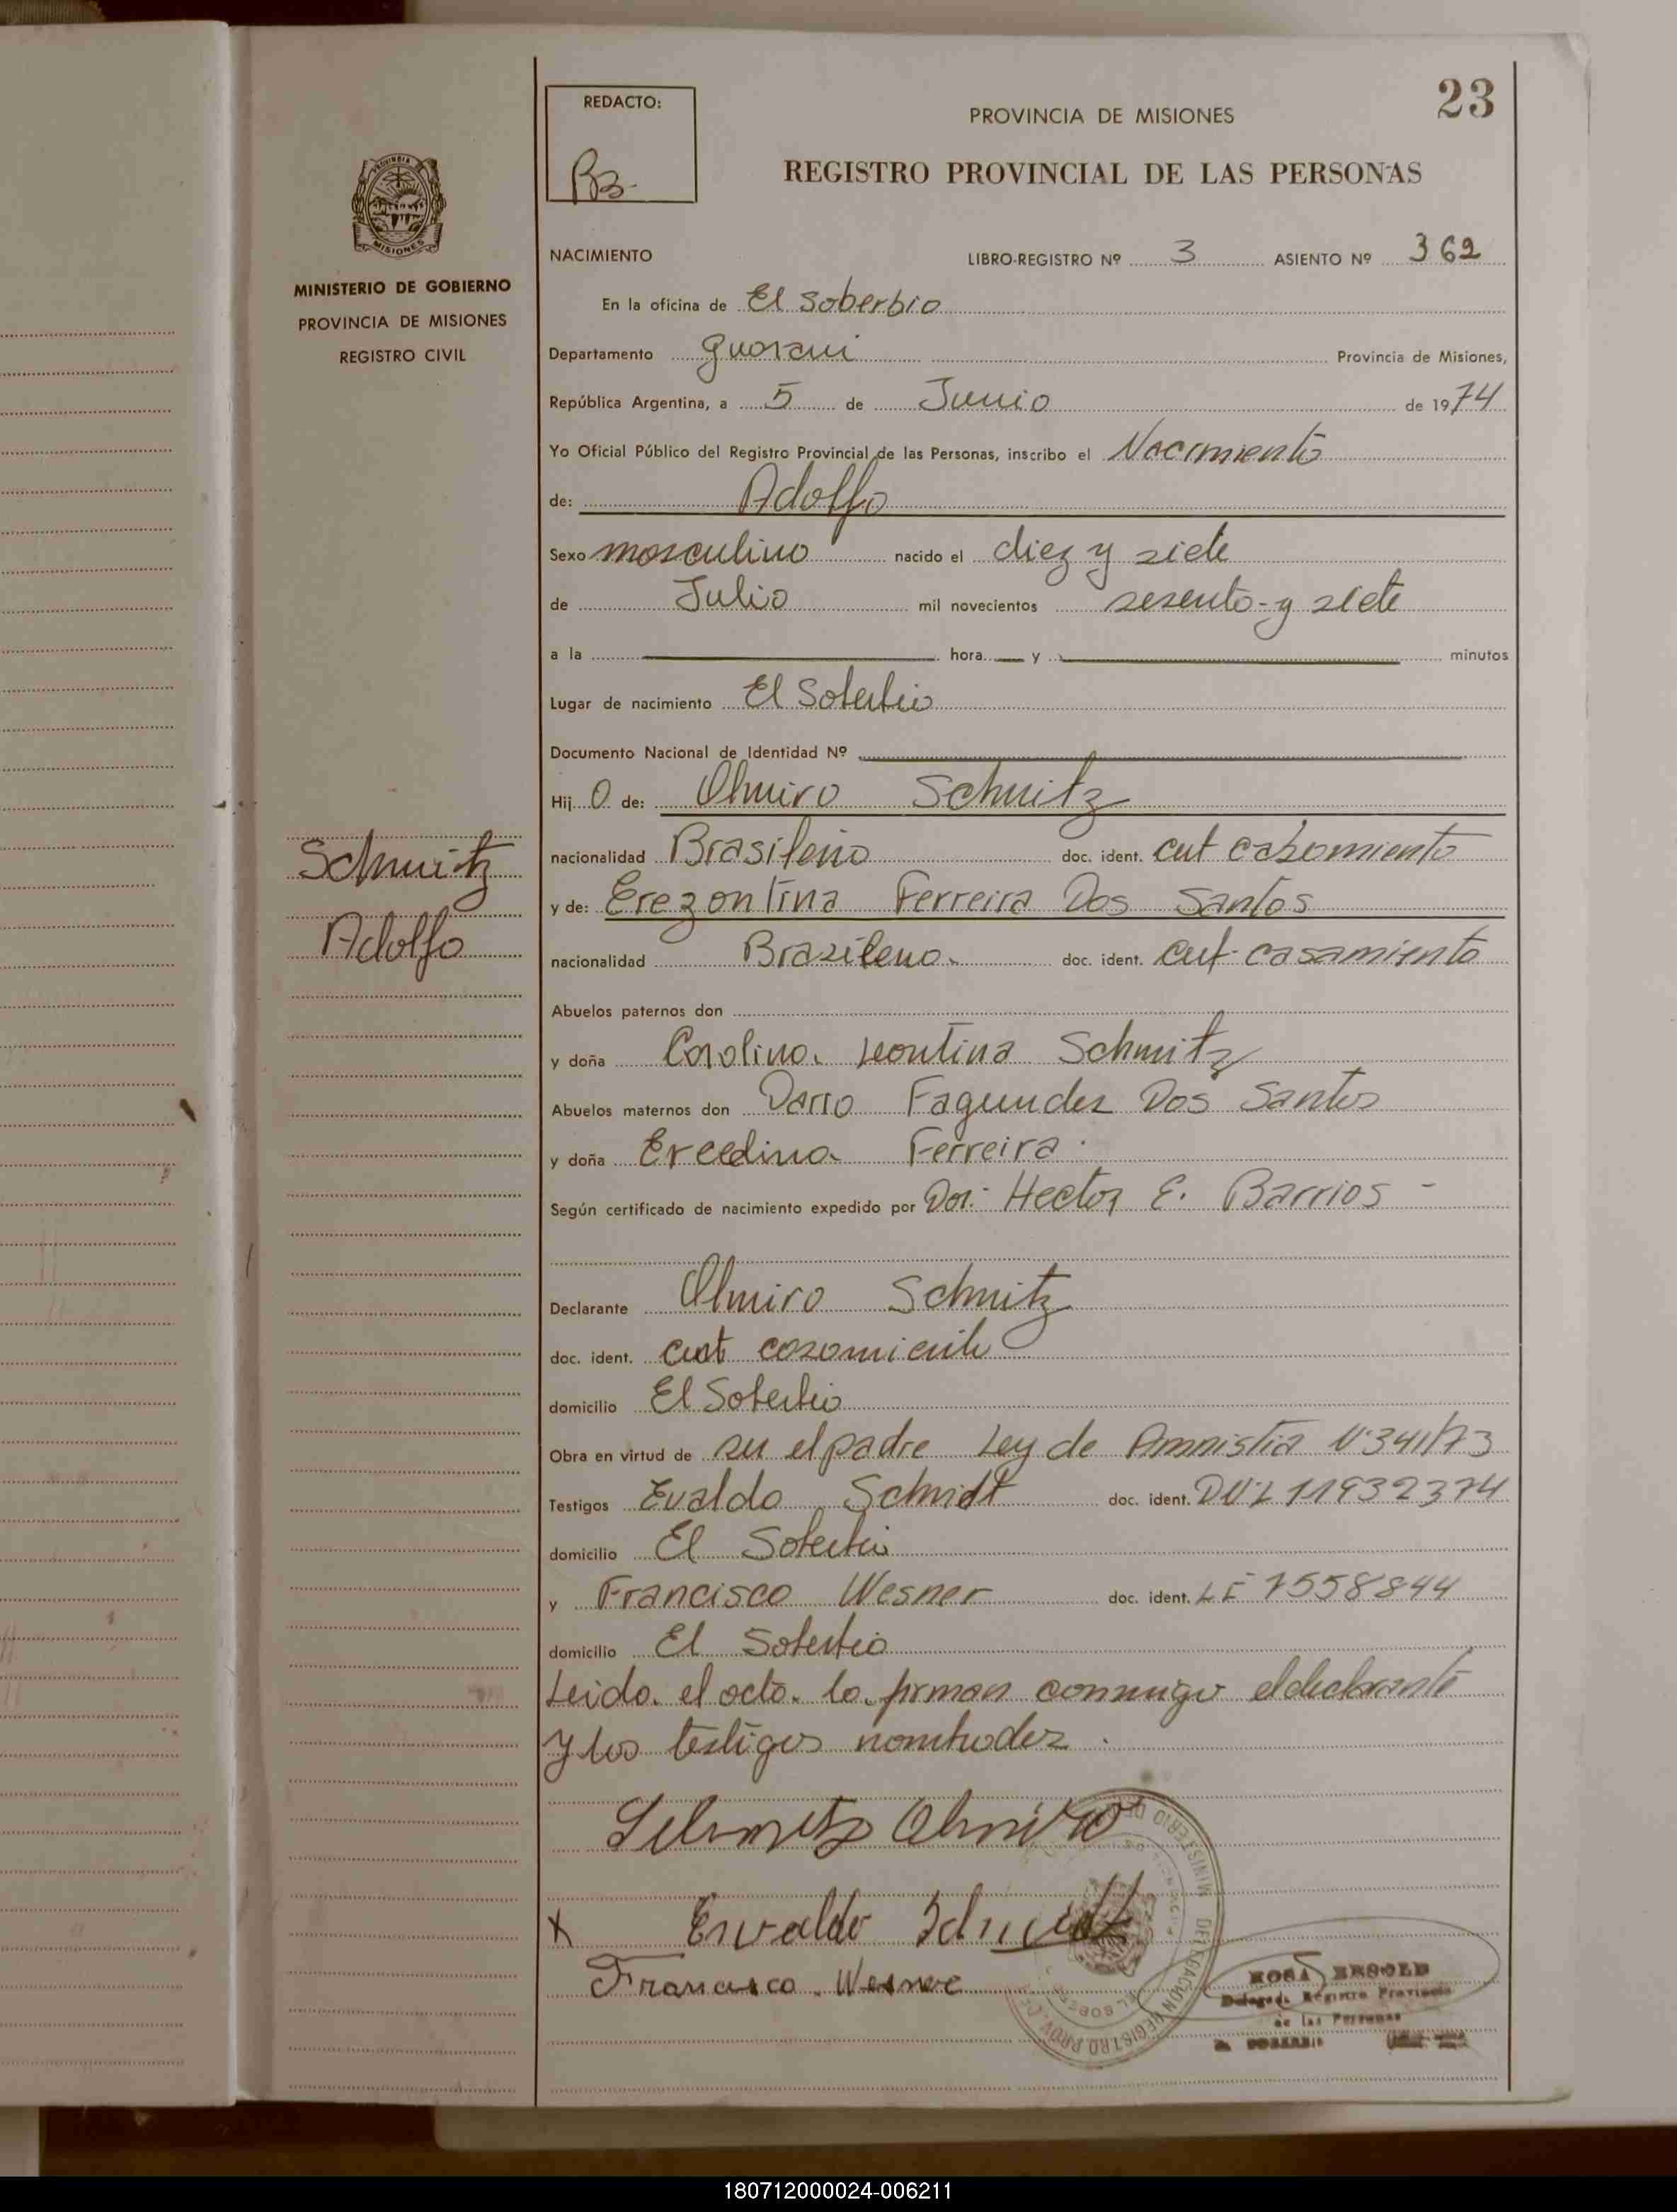 23
REDACTO:
PROVINCIA DE MISIONES
REGISTRO PROVINCIAL DE LAS PERSONAS
MISIONES
MINISTERIO DE GOBIERNO
PROVINCIA DE MISIONES
REGISTRO CIVIL
NACIMIENTO LIBRO-REGISTRO Nº 3 ASIENTO Nº 362
En la oficina de El Soberbio
Departamento Guarani Provincia de Misiones,
República Argentina, a 5 de Junio de 1974
Yo Oficial Público del Registro Provincial de las Personas, inscribo el Nacimiento
de: Adolfo
Sexo masculino nacido el diez y siete
de Julio mil novecientos sesenta-y siete
a la hora y minutos
Lugar de nacimiento El Soberbio
Documento Nacional de Identidad Nº
Hij O de: Olmiro Schmitz
nacionalidad Brasileño doc. ident. cert casamiento
y de: Erezontina Ferreira Dos Santos
nacionalidad Brasileno. doc. ident. cert casamiento
Schmitz
Adolfo
Abuelos paternos don
y doña Carolina Leontina Schmitz
Abuelos maternos don Dario Fagundez Dos Santos
y doña Ercedina Ferreira
Según certificado de nacimiento expedido por Dor. Hector E. Barrios -
Declarante Olmiro Schmitz
doc. ident. cert casamiento
domicilio El Soberbio
Obra en virtud de ser el padre Ley de Amnistia Nº 341/73
Testigos Evaldo Schmidt doc. ident.
domicilio El Soberbio
y Francisco Wesner doc. ident. LE 7558844
domicilio El Soberbio
Leido el acta la firman conmigo el declarante
y los testigos nombrados.
Schmitz Olmiro
X Ervaldo Schmidt
Francisco Wesner
MINISTERIO DE
DELEGACION REGISTRO PROV. DE
EL SOBERBIO
ROSA
Delegada Registro Provincial
de las Personas
El SOBERBIO
180712000024-006211